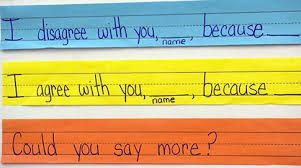 I disagree with you, ____, because ____
name
I agree with you, ____, because ____
name
Could you say more?